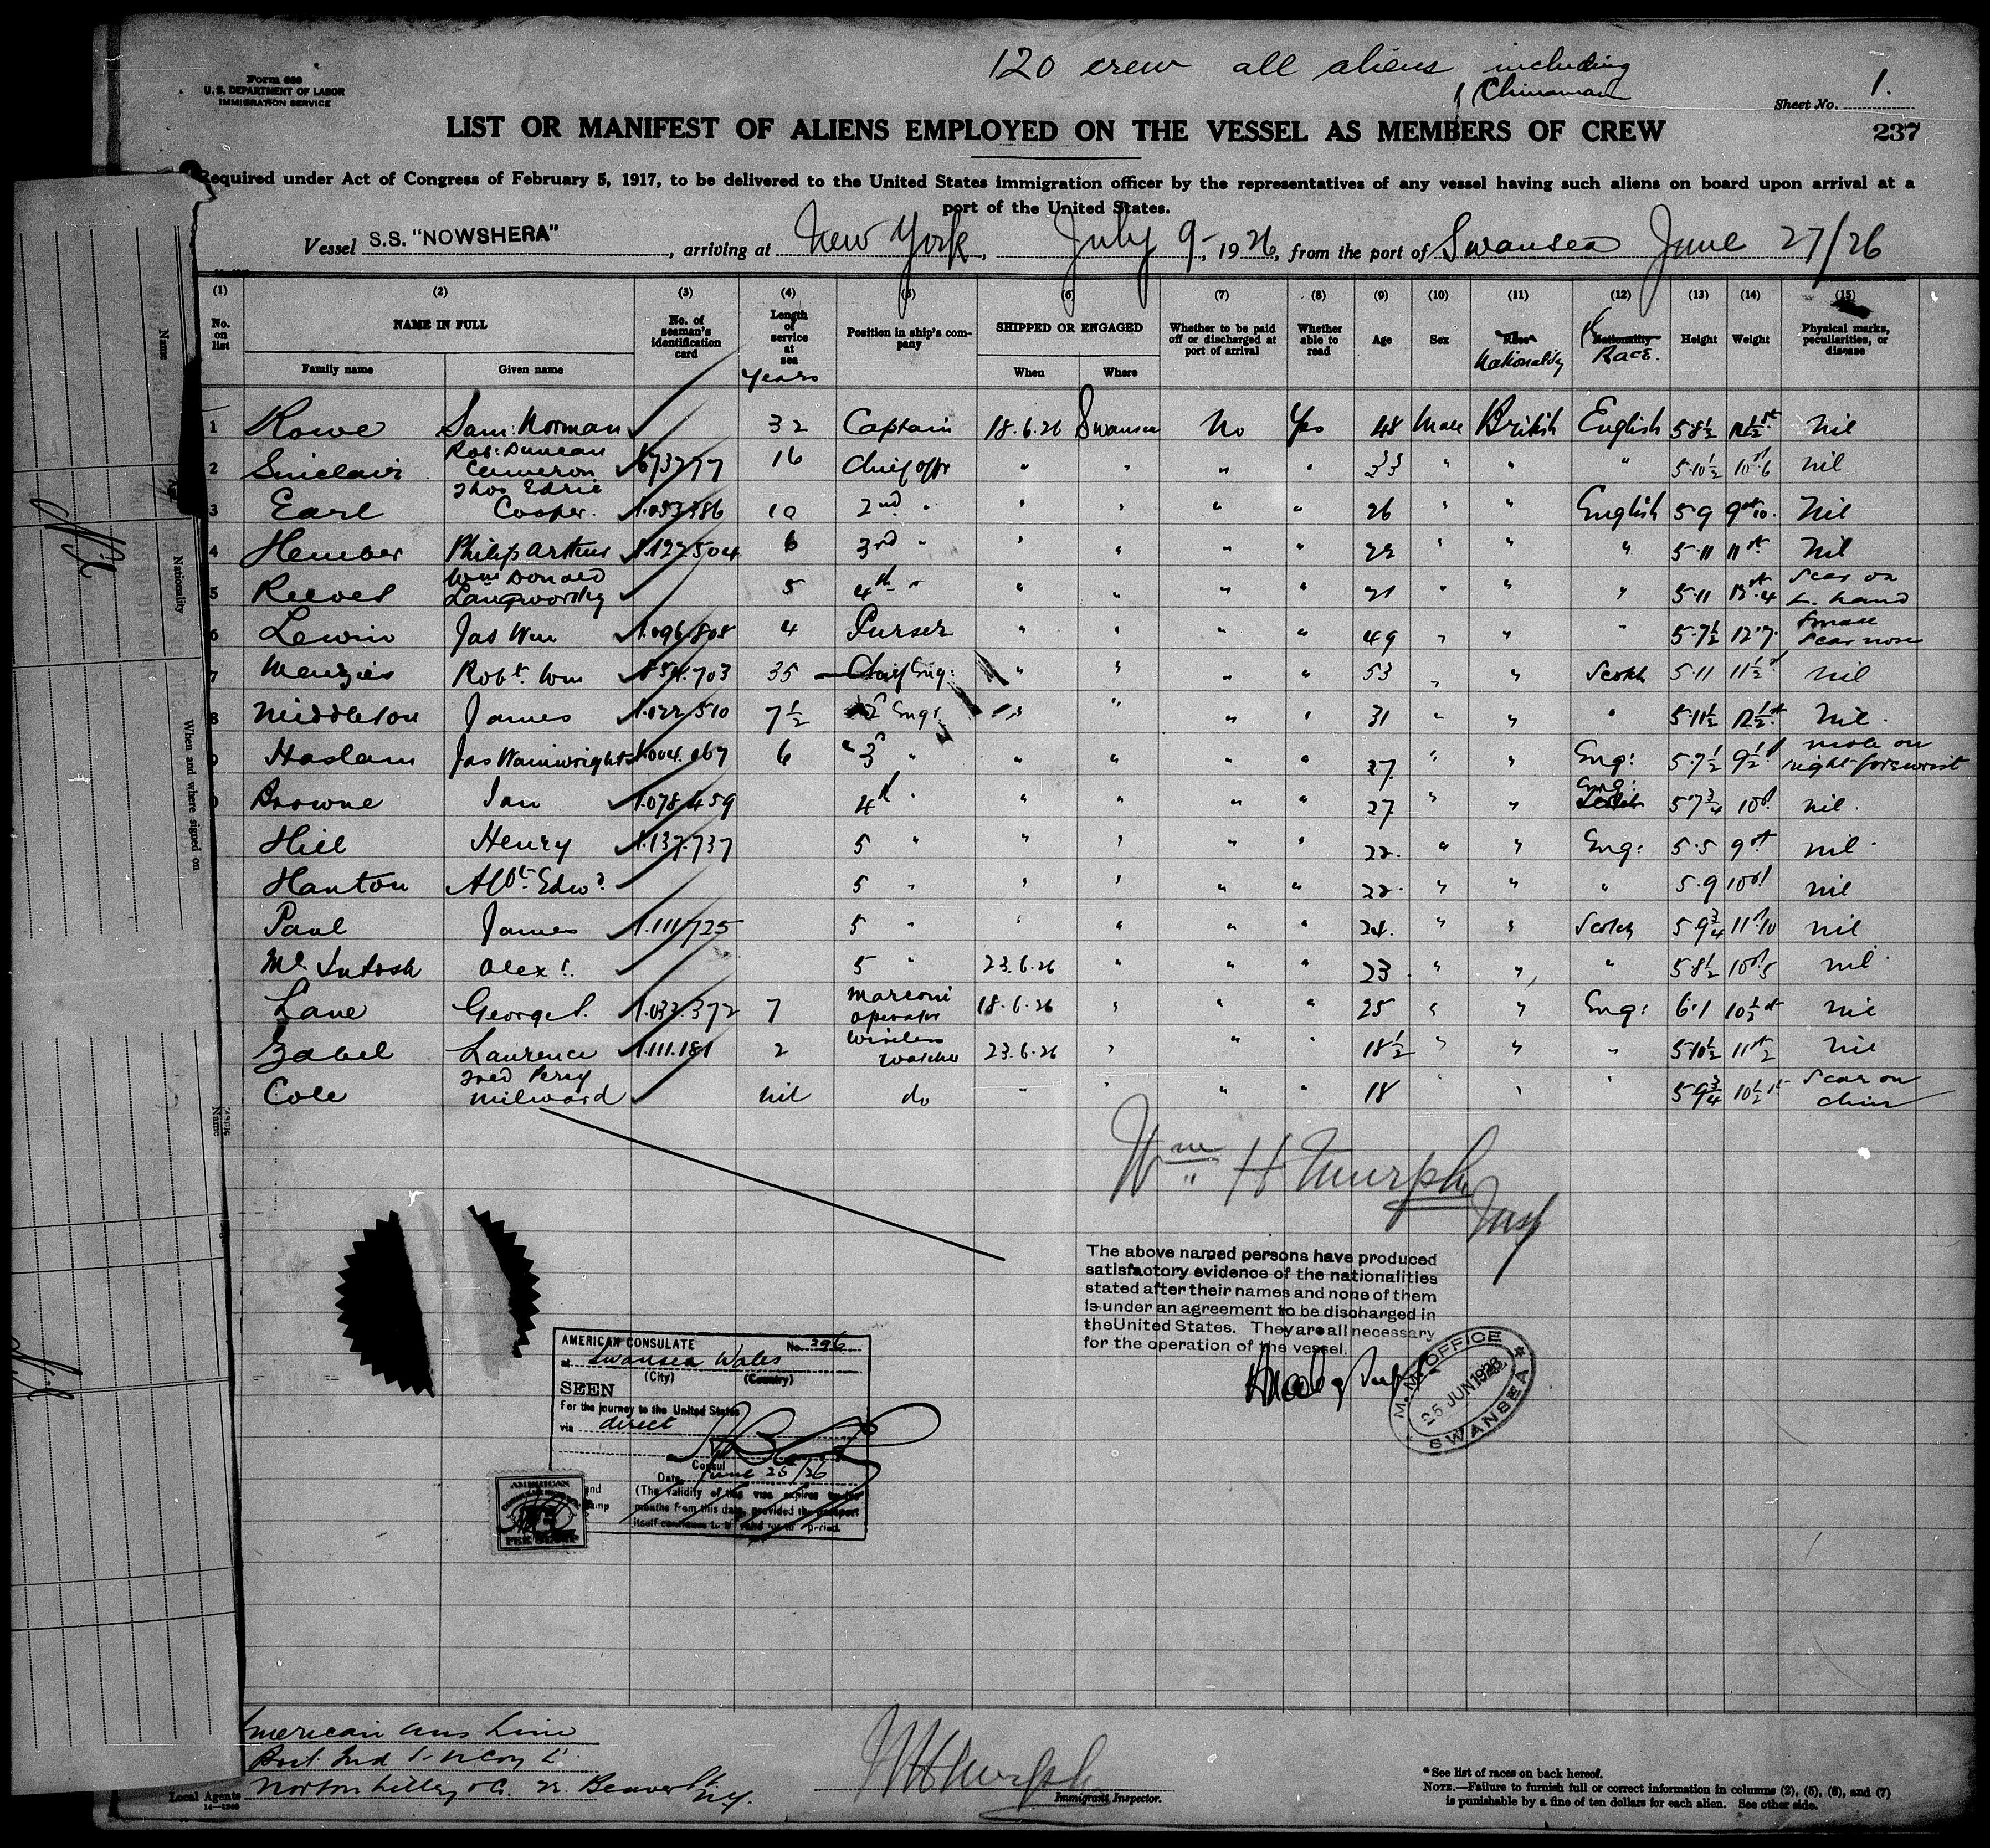 120 crew all aliens including
1 Chinaman
Form 680
U. S. DEPARTMENT OF LABOR
IMMIGRATION SERVICE
Sheet No. 1.
LIST OR MANIFEST OF ALIENS EMPLOYED ON THE VESSEL AS MEMBERS OF CREW
237
Required under Act of Congress of February 5, 1917, to be delivered to the United States immigration officer by the representatives of any vessel having such aliens on board upon arrival at a
port of the United States.
Vessel S.S. "NOWSHERA", arriving at New York, July 9, 1926, from the port of Swansea June 27/26
(1) (2) (3) (4) (5) (6) (7) (8) (9) (10) (11) (12) (13) (14) (15)
No. on list NAME IN FULL Family name Given name No. of seaman's identification card Length of service at sea Years Position in ship's company SHIPPED OR ENGAGED When Where Whether to be paid off or discharged at port of arrival Whether able to read Age Sex Race Nationality Nationality Race. Height Weight Physical marks, peculiarities, or disease
1 Rowe Sam: Norman 32 Captain 18.6.26 Swansea No Yes 48 Male British English 5 8½ 12½ st Nil
2 Sinclair Rob: Duncan Cameron 673277 16 Chief offr " " " " 33 " " " 5·10½ 10st 6 nil
3 Earl Thos Edric Cooper. 1.053386 10 2nd " " " " " 26 " " English 5·9 9st 10. Nil
4 Hember Philip Arthur 1.122504 6 3rd " " " " " 22 " " " 5·11 11st Nil
5 Reeves Wm Donald Langworthy 5 4th " " " " " 21 " " " 5·11 12st 4 Scar on L. hand
6 Lewin Jas Wm 1.096.808 4 Purser " " " " 49 " " " 5·7½ 12·7. Small scar nose
7 Menzies Robt. Wm 854.703 35 Chief Eng: " " " " 53 " " Scotch 5·11 11½ st nil
8 Middleton James 1.022.510 7½ 2 Engr " " " " 31 " " " 5·11½ 12½ st Nil.
9 Haslam Jas Wainwright 1.004.067 6 3 " " " " " 27 " " Eng: 5·7½ 9½ st mole on right forewrist
Browne Ian 1.078.459 4th " " " " " 27 " " Eng: Scotch 5 7¾ 10st nil.
Hill Henry 1.137.737 5 " " " " " 22. " " Eng: 5·5 9st nil.
Hanton Albt. Edwd. 5 " " " " " 22. " " " 5·9 10st nil
Paul James 1.111.725 5 " " " " " 24. " " Scotch 5·9¾ 11st 10 nil
McIntosh Alexr. 5 " 23.6.26 " " " 23 " " " 5 8½ 10st 5 nil
Lane George S. 1.033.372 7 Marconi operator 18.6.26 " " " 25 " " Eng: 6·1 10½ st Nil
Zabel Laurence 1.111.181 2 Wireless watcher 23.6.26 " " " 18½ " " " 5·10½ 11st 2 Nil
Cole Fred Percy Milward nil do " " " " 18 " " " 5·9¾ 10½ st Scar on chin
Wm H Murphy
Insp
The above named persons have produced
satisfactory evidence of the nationalities
stated after their names and none of them
is under an agreement to be discharged in
the United States. They are all necessary
for the operation of the vessel.
M.M. OFFICE
25 JUN 1926
SWANSEA
AMERICAN CONSULATE No. 296
at Swansea Wales
(City) (Country)
SEEN
For the journey to the United States
via direct
Consul
Date June 25/26
(The validity of this visa expires
months from this date, provided the passport
itself continues to be valid for period.
AMERICAN
FEE STAMP
Name
Nationality
When and where signed on
Name
American Line
Norton Lilly & Co. Beaver St. N.Y.
Local Agents
14—1240
WH Murphy
Immigrant Inspector.
* See list of races on back hereof.
NOTE.—Failure to furnish full or correct information in columns (2), (5), (6), and (7)
is punishable by a fine of ten dollars for each alien. See other side.